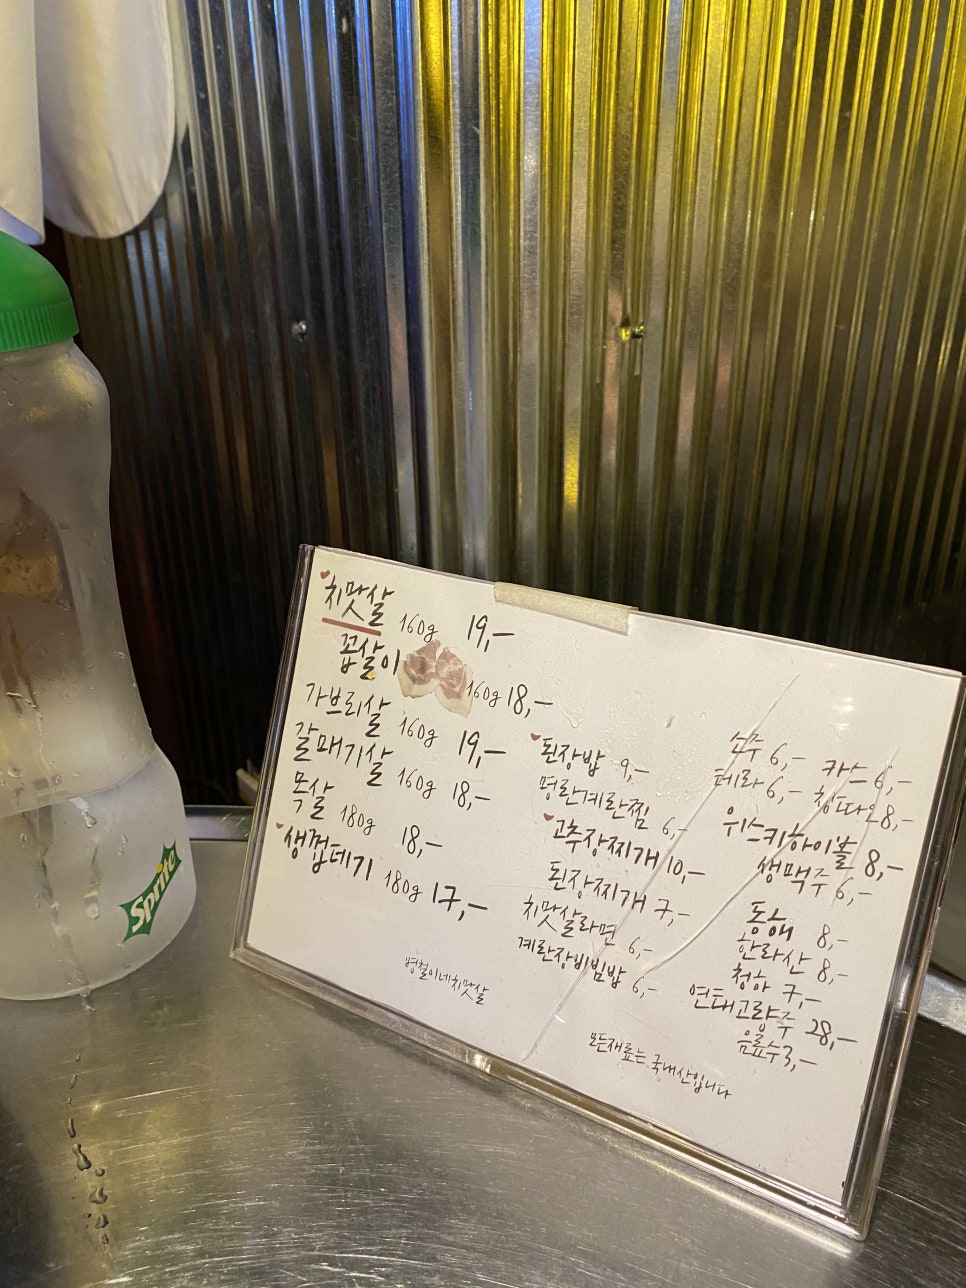 치맛살 160g 19,-
꼽살이 160g 18,-
가브리살 160g 19,-
갈매기살 160g 18,-
목살 180g 18,-
생껍데기 180g 17,-
병철이네치맛살
된장밥 9,-
명란계란찜 6,-
고추장찌개 10,-
된장찌개 7,-
치맛살라면 6,-
계란장비빔밥 6,-
소주 6,- 카스 6,-
테라 6,- 칭따오 8,-
위스키하이볼 8,-
생맥주 6,-
동해 8,-
한라산 8,-
청하 7,-
연태고량주 28,-
음료수 3,-
모든재료는 국내산입니다
Sprite